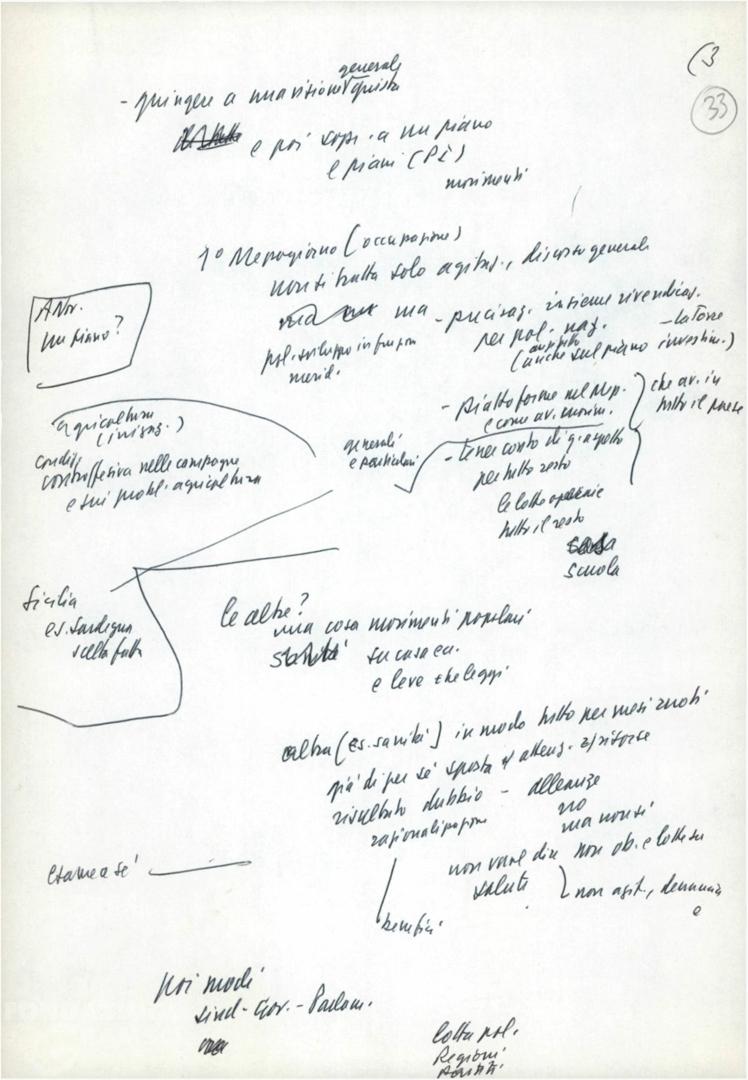 (3
33
generale
- giungere a una visione giusta
e poi sopr. a un piano
e piani (PÈ)
movimenti
1° Mezzogiorno (occupazione)
non si tratta solo agitaz., discorso generale
ma - precisaz. insieme rivendicaz.
pol. sviluppo in funzion
merid.
per pol. naz. - la Torre
appunto
(anche sul piano investim.)
A Nov.
un piano?
agricoltura
(iniziaz.)
condiz.
controffensiva nelle campagne
e sui probl. agricoltura
generali
e particolari
- Piattaforme nel Mzp.
e come av. movim.
che av. in
tutto il paese
- tener conto di q. aspetto
per tutto resto
le lotte operaie
tutto il resto
scuola
Sicilia
es. Sardegna
le altre?
una cosa movimenti popolari
su casa ecc.
e leve che leggi
altra (es. sanità) in modo tutto per mesi
già di per sé sposta
risultato dubbio - alleanze
razionalizzazione
no
ma non si
non vuol dire non ob. e lotte su
salute
non agit., denuncia
e
esame a sé
benefici
poi modi
sind - Gov. - Parlam.
lotta pol.
Regioni
Partiti